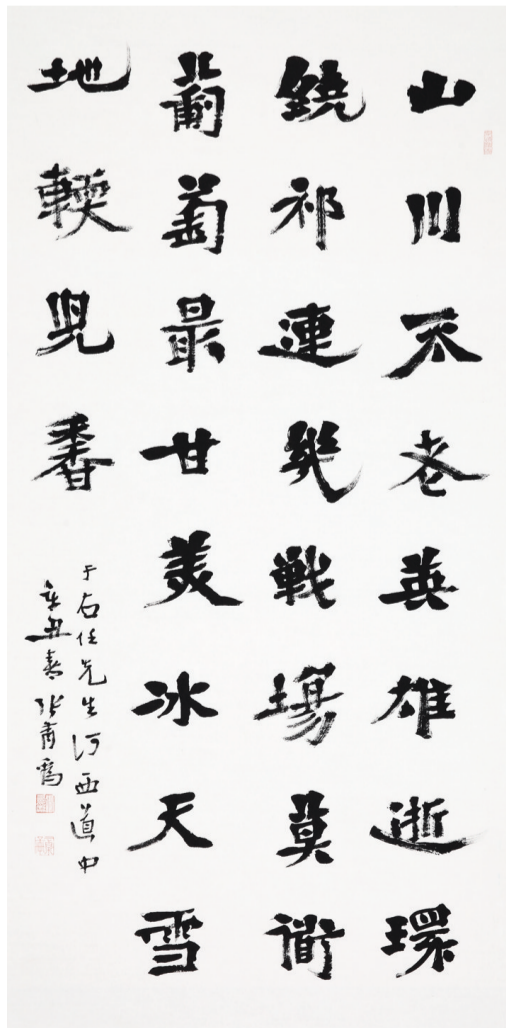 山川不老英雄逝環
繞祁連幾戰場莫衜
葡萄最甘美冰天雪
地輭兒香
于右任先生河西道中
辛丑春張